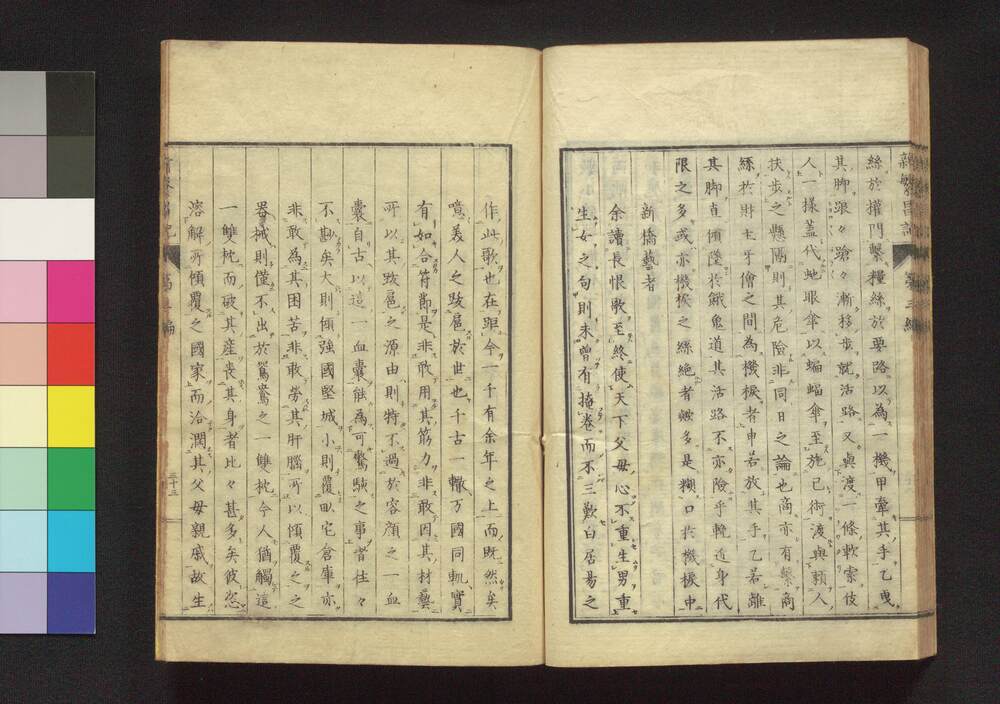 絲於權門繫糧絲於要路以為一機甲牽其手乙曳
其脚踉々蹌々漸移步就活路又與渡一條軟索伎
人一樣蓋代虵眼傘以蝙蝠傘至施己術渡與頼人
扶步之懸隔則其危險非同日之論也商亦有繫商
絲於財主牙儈之間為機棙者申若放其手乙若離
其脚直傾墜於餓鬼道其活路不亦險乎輓近身代
限之多或亦機棙之絲絶者嫂多是糊口於機棙中
新橋藝者
余讀長恨歌至終使天下父母心不重生男重
生女之句則未曾有掩卷而不三歎白居易之
作此歌也在距今一千有余年之上而既然矣
噫美人之跋扈於世也千古一轍万國同軌實
有如合符節是非敢用其筋力非敢因其材藝
所以其跋扈之源由則特不過於容顔之一血
囊自古以這一血囊能為可驚駭之事者往々
不尠矣大則傾強國堅城小則覆田宅倉庫亦
非敢為其困苦非敢勞其肝腦所以傾覆之之
器械則僅不出於鴛鴦之一雙枕令人偤觸這
一雙枕而破其産喪其身者比々甚多矣彼恣
溶解所傾覆之國家而洽潤其父母親戚故生
三十三